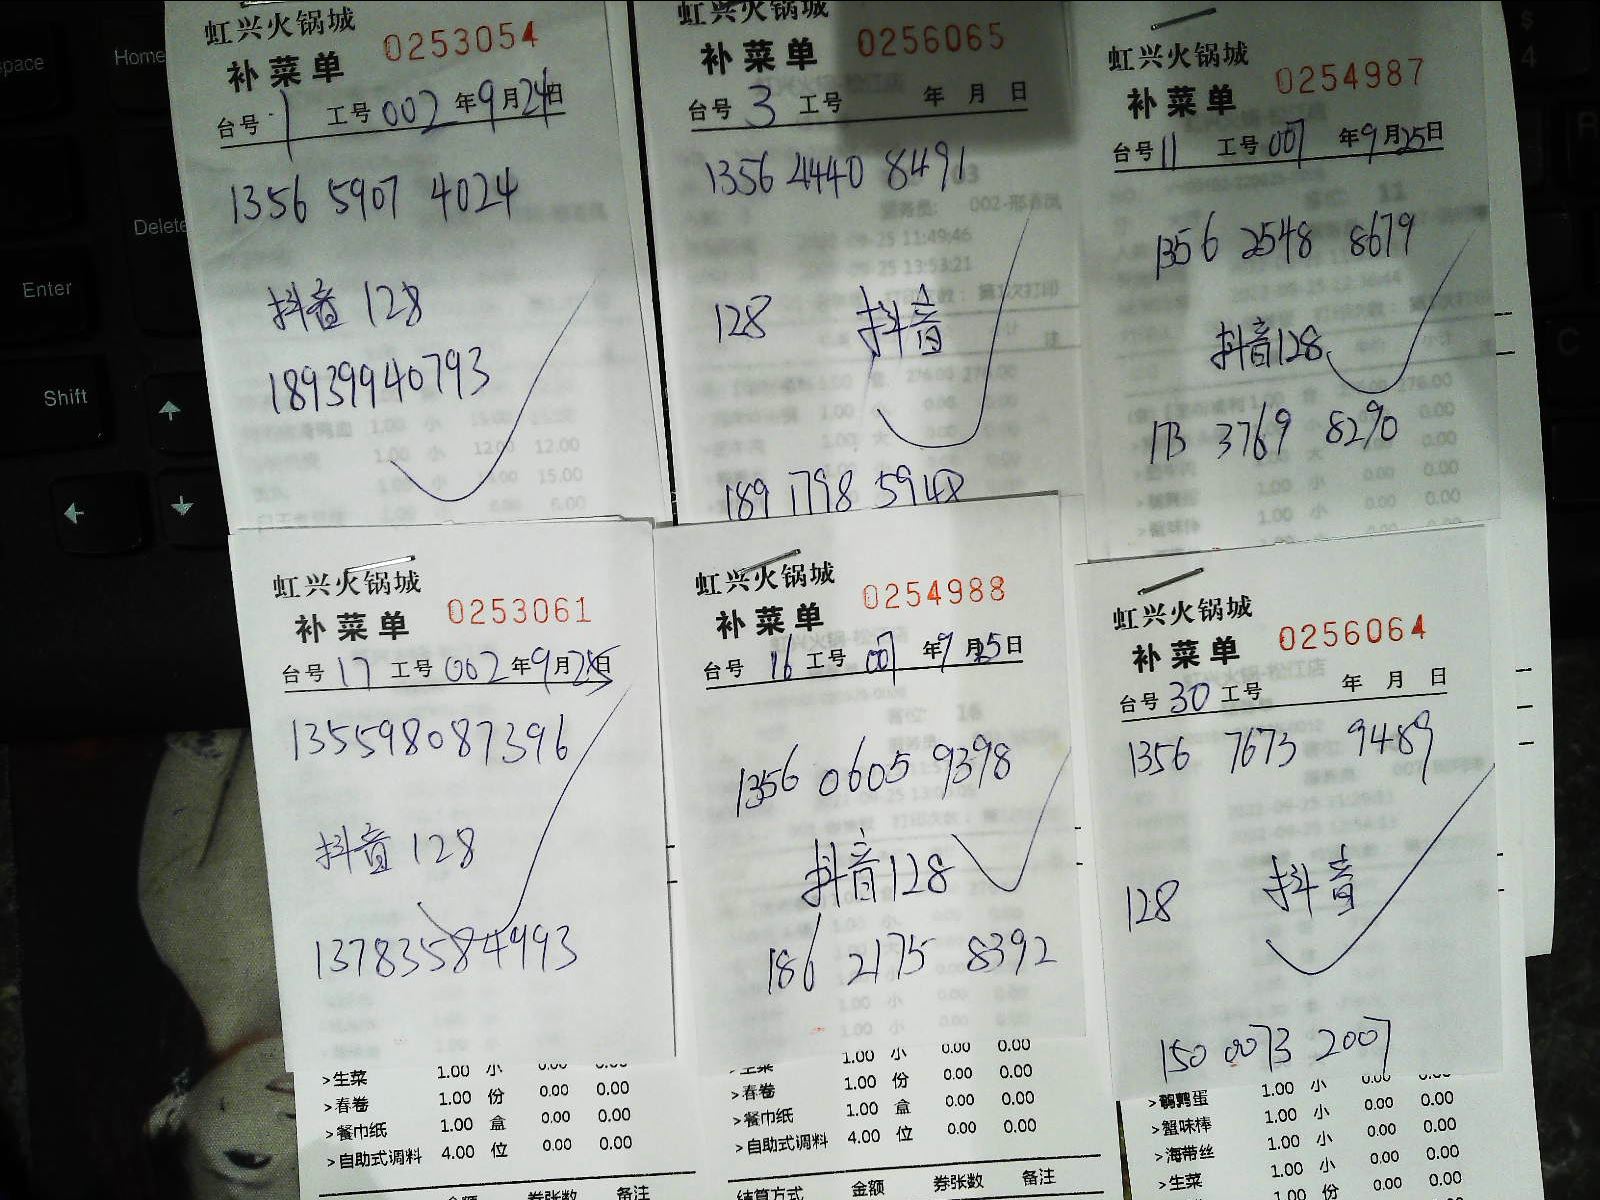 虹兴火锅城
补菜单 0253054
台号 1 工号 002 年 9 月 24 日
1356 5907 4024
抖音 128
18939940793
虹兴火锅城
补菜单 0256065
台号 3 工号 年 月 日
1356 4440 8491
128 抖音
189 1798 5948
虹兴火锅城
补菜单 0254987
台号 11 工号 007 年 9 月 25 日
1356 2548 8679
抖音128
173 3769 8290
虹兴火锅城
补菜单 0253061
台号 17 工号 002 年 9 月 25 日
135598087396
抖音 128
13783584993
>生菜 1.00 小 0.00 0.00
>春卷 1.00 份 0.00 0.00
>餐巾纸 1.00 盒 0.00 0.00
>自助式调料 4.00 位 0.00 0.00
金额 券张数 备注
虹兴火锅城
补菜单 0254988
台号 16 工号 007 年 9 月 25 日
1356 0605 9398
抖音128
186 2175 8392
1.00 小 0.00 0.00
>生菜 1.00 小 0.00 0.00
>春卷 1.00 份 0.00 0.00
>餐巾纸 1.00 盒 0.00 0.00
>自助式调料 4.00 位 0.00 0.00
结算方式 金额 券张数 备注
虹兴火锅城
补菜单 0256064
台号 30 工号 年 月 日
1356 7673 9489
128 抖音
150 0073 2007
>鹌鹑蛋 1.00 小 0.00 0.00
>蟹味棒 1.00 小 0.00 0.00
>海带丝 1.00 小 0.00 0.00
>生菜 1.00 小 0.00 0.00
1.00 份 0.00 0.00
Home
Delete
Enter
Shift